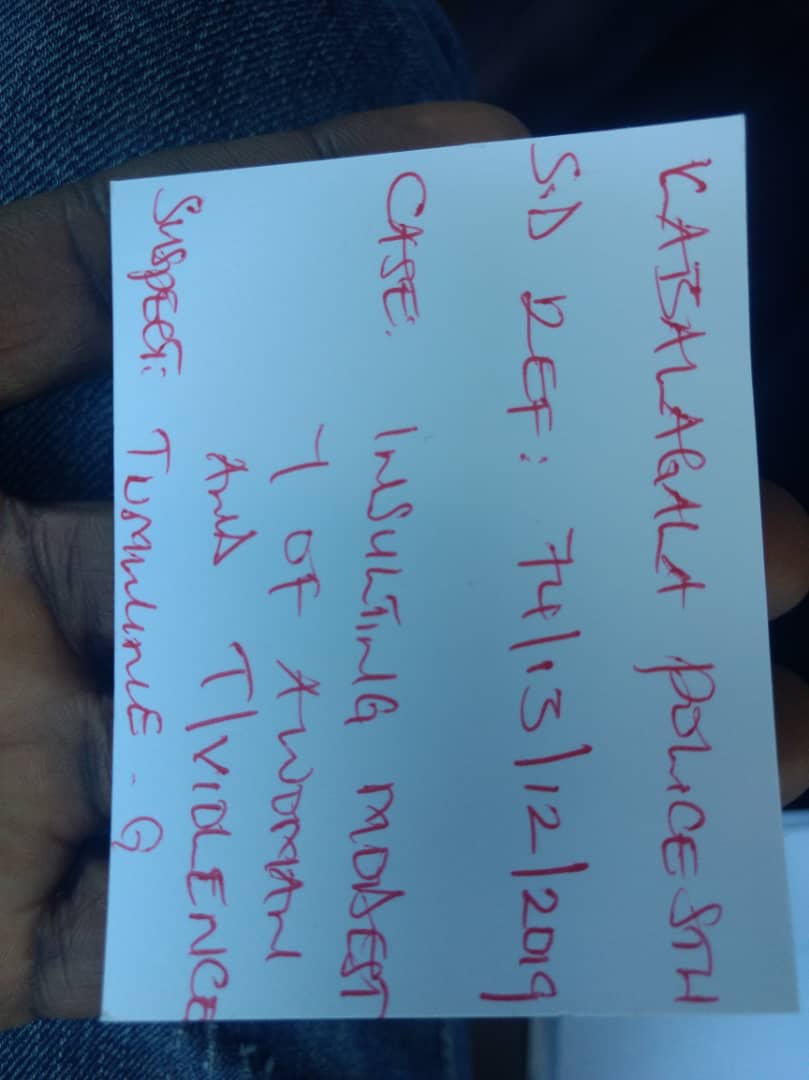 KABALAGALA POLICE STN
S.D REF: 74/13/12/2019
CASE: INSULTING MODEST
Y OF A WOMAN
AND T/VIOLENCE
SUSPECT: TUMWINE - G